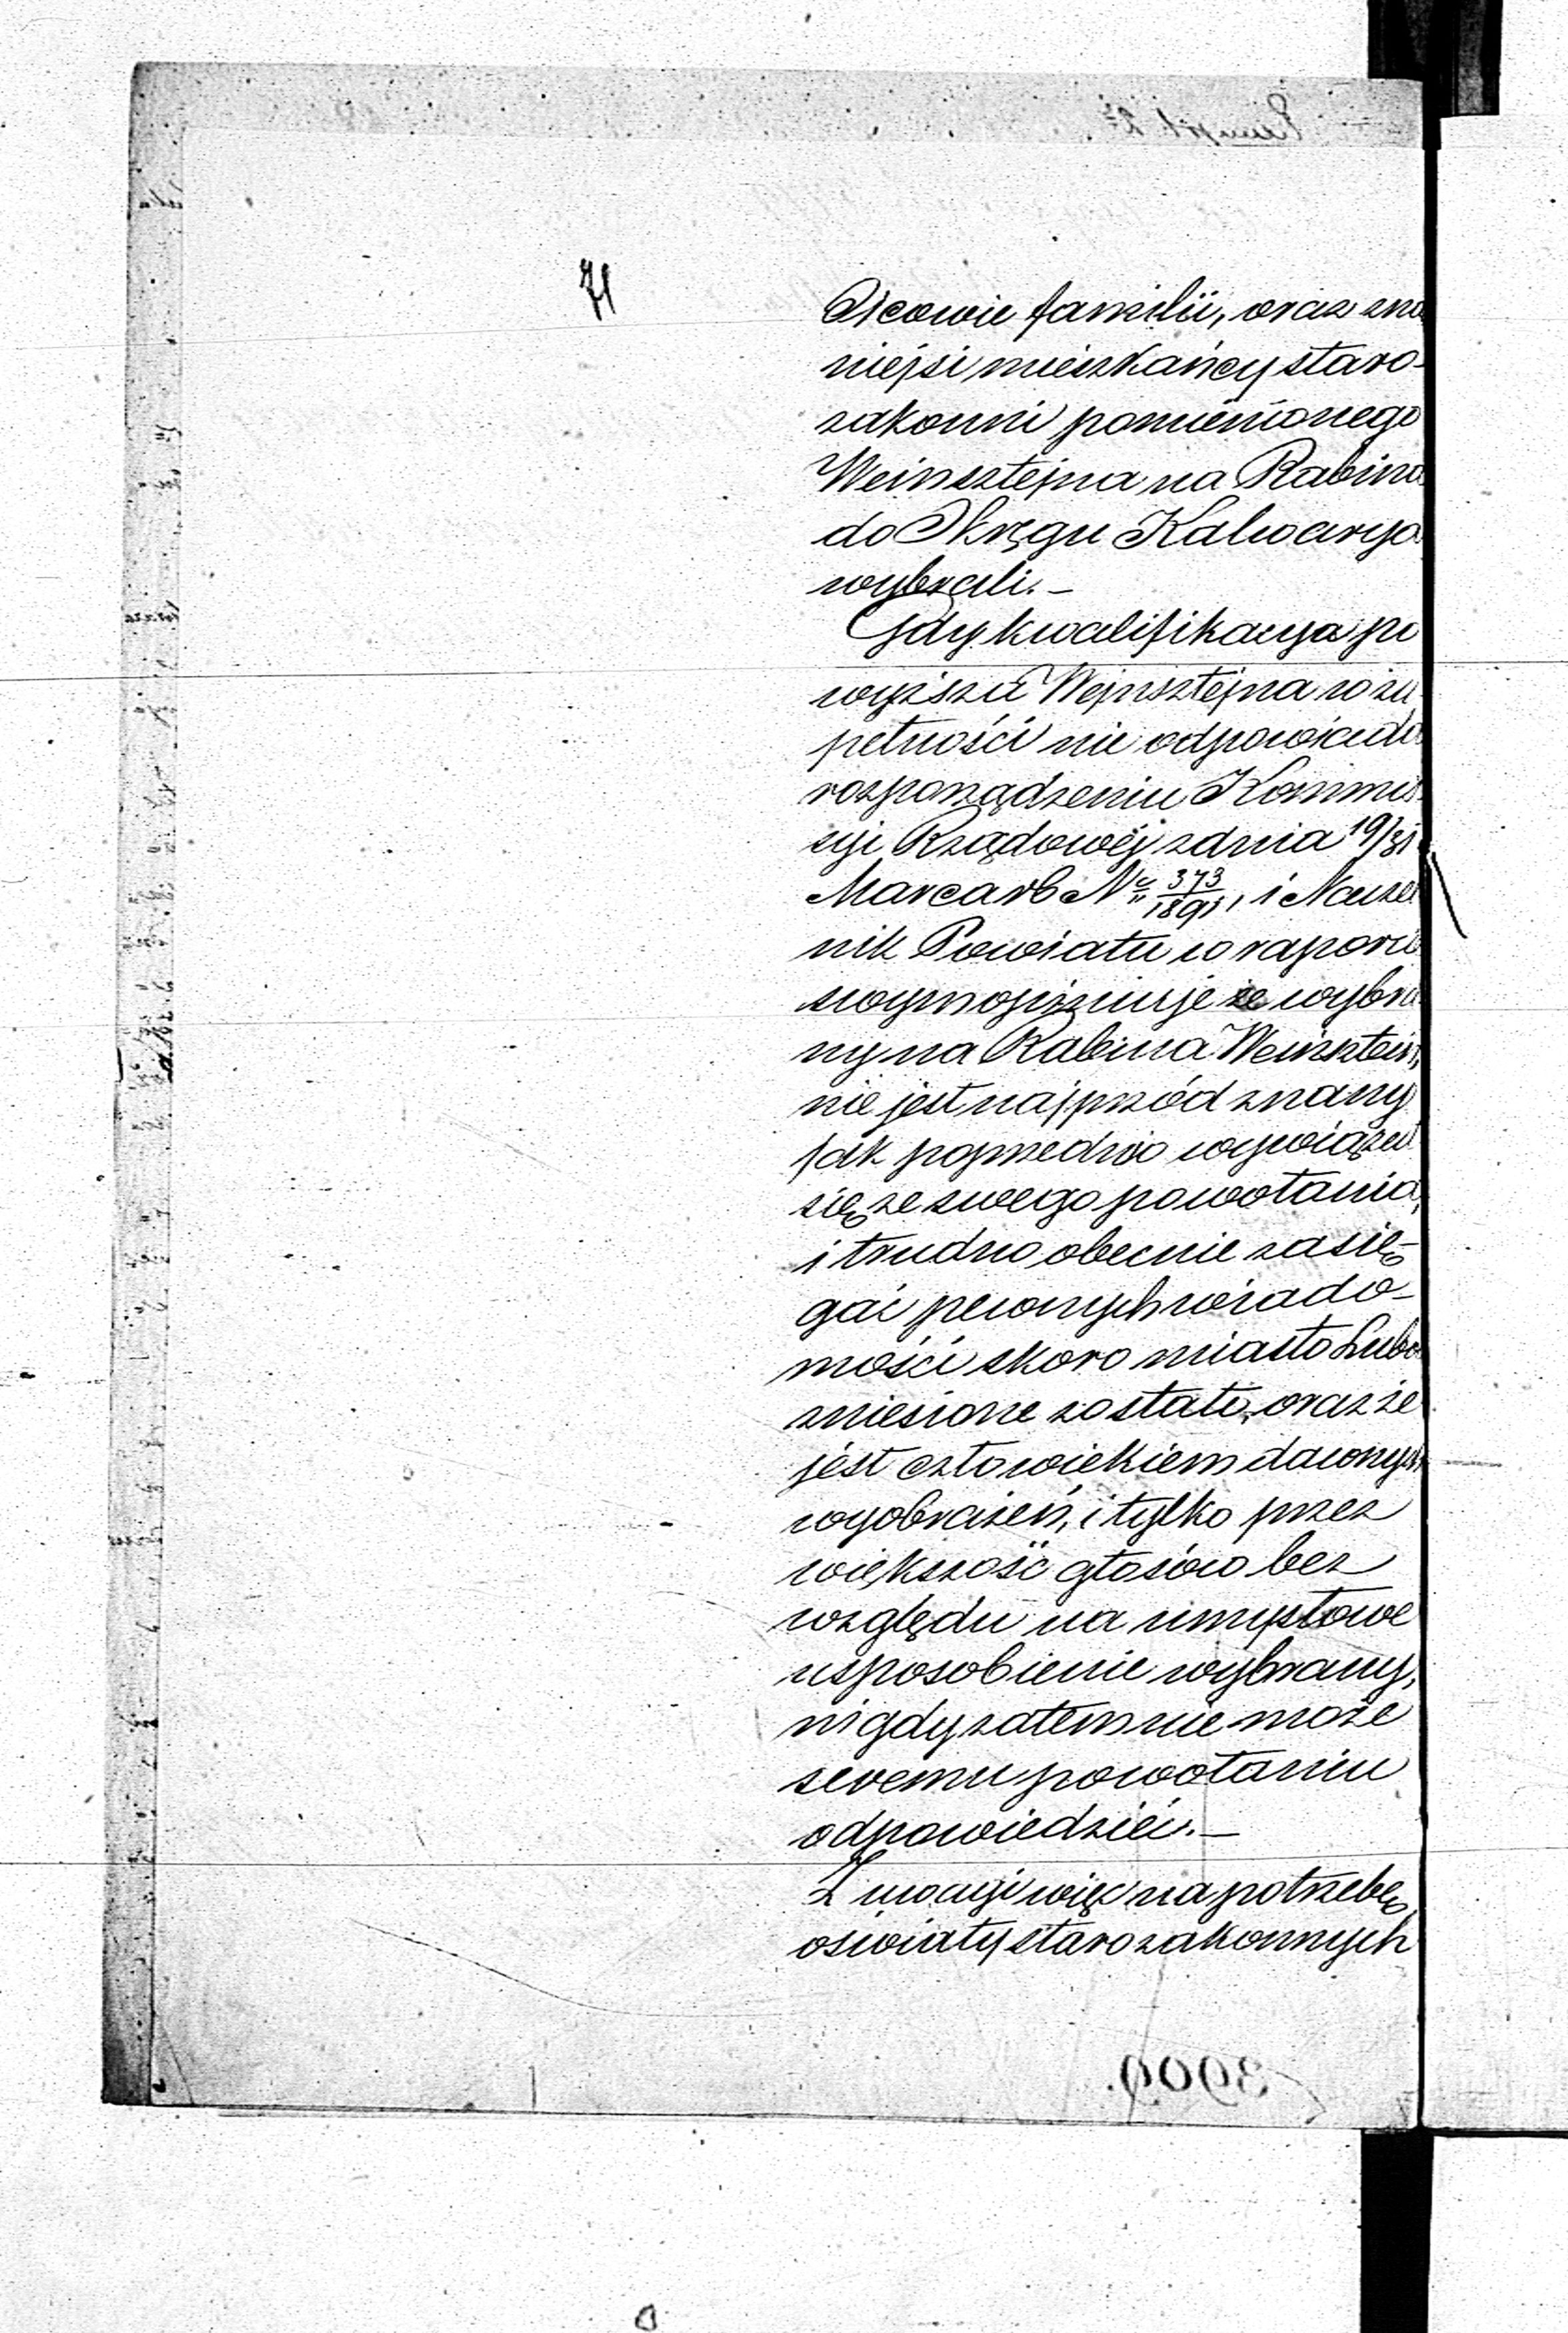 Ojcowie familii, oraz zna
niejsi mieszkańcy staro-
zakonni pomienionego
Weinsztejna na Rabina
do Okręgu Kalwarya
wybrali. –
Gdy kwalifikacya po
wyższa Wejnsztejna w zu-
pełności nie odpowiada
rozporządzeniu Kommis
syi Rządowéj z dnia 19/31
Marca rb Nº 373/1891, i Naczel
nik Powiatu w raporci
swym opiniuje że wybra
ny na Rabina Weinstein,
nie jest najprzód znany
jak poprzednio wywiązał
się ze swego powołania,
i trudno obecnie zasię-
gać pewnych wiado-
mości skoro miasto Lubo
zniesione zostało, oraz że
jest człowiekiem dawnych
wyobrażeń, i tylko przez
większość głosów bez
względu na umysłowe
usposobienie wybrany,
nigdy zatem nie może
swemu powołaniu
odpowiedzieć. –
Z uwagi więc na potrzebę
oświaty starozakonnych
3909.